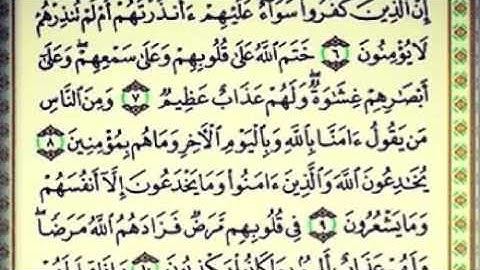 إِنَّ الَّذِينَ كَفَرُوا۟ سَوَآءٌ عَلَيْهِمْ ءَأَنذَرْتَهُمْ أَمْ لَمْ تُنذِرْهُمْ
لَا يُؤْمِنُونَ ٦ خَتَمَ اللَّهُ عَلَىٰ قُلُوبِهِمْ وَعَلَىٰ سَمْعِهِمْ ۖ وَعَلَىٰٓ
أَبْصَـٰرِهِمْ غِشَـٰوَةٌ ۖ وَلَهُمْ عَذَابٌ عَظِيمٌ ٧ وَمِنَ النَّاسِ
مَن يَقُولُ ءَامَنَّا بِاللَّهِ وَبِالْيَوْمِ الْـَٔاخِرِ وَمَا هُم بِمُؤْمِنِينَ ٨
يُخَـٰدِعُونَ اللَّهَ وَالَّذِينَ ءَامَنُوا۟ وَمَا يَخْدَعُونَ إِلَّآ أَنفُسَهُمْ
وَمَا يَشْعُرُونَ ٩ فِى قُلُوبِهِم مَّرَضٌ فَزَادَهُمُ اللَّهُ مَرَضًا ۖ
وَلَهُمْ عَذَابٌ أَلِيمٌۢ بِمَا كَانُوا۟ يَكْذِبُونَ ١٠ وَإِذَا قِيلَ لَهُمْ